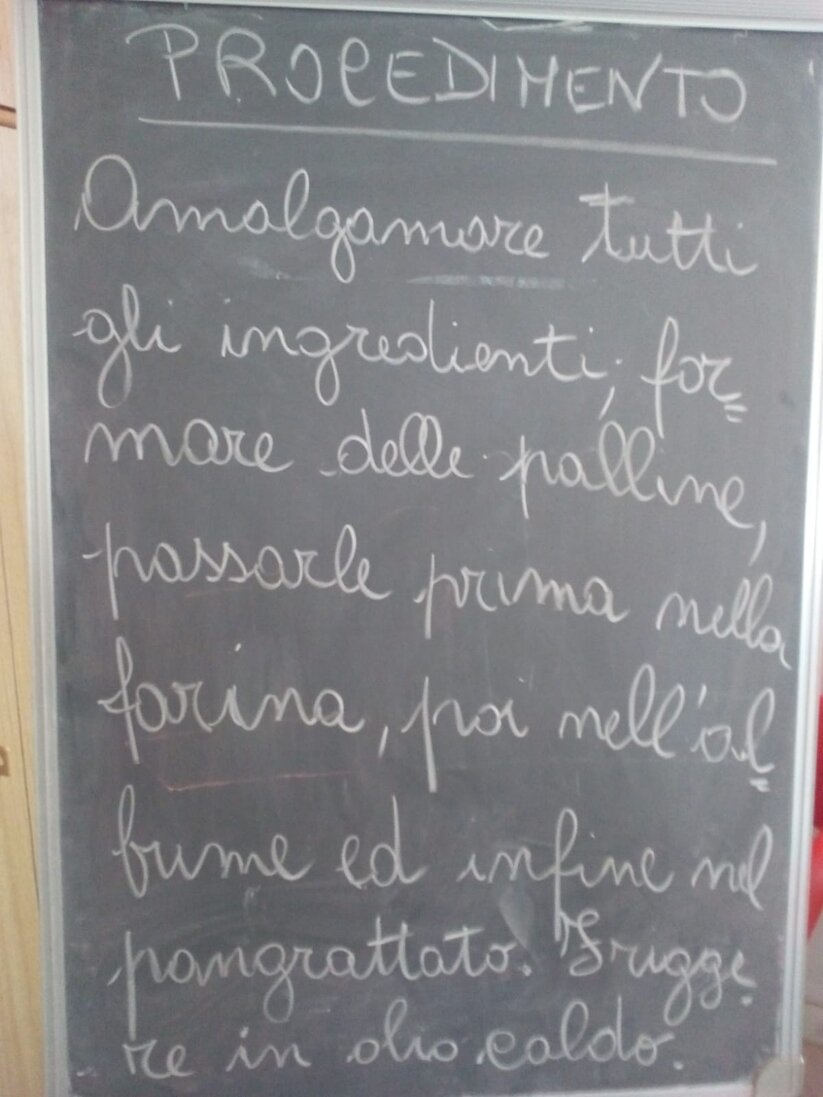 PROCEDIMENTO
Amalgamare tutti
gli ingredienti, for=
mare delle palline,
passarle prima nella
farina, poi nell'al=
bume ed infine nel
pangrattato. Frigge
re in olio caldo.